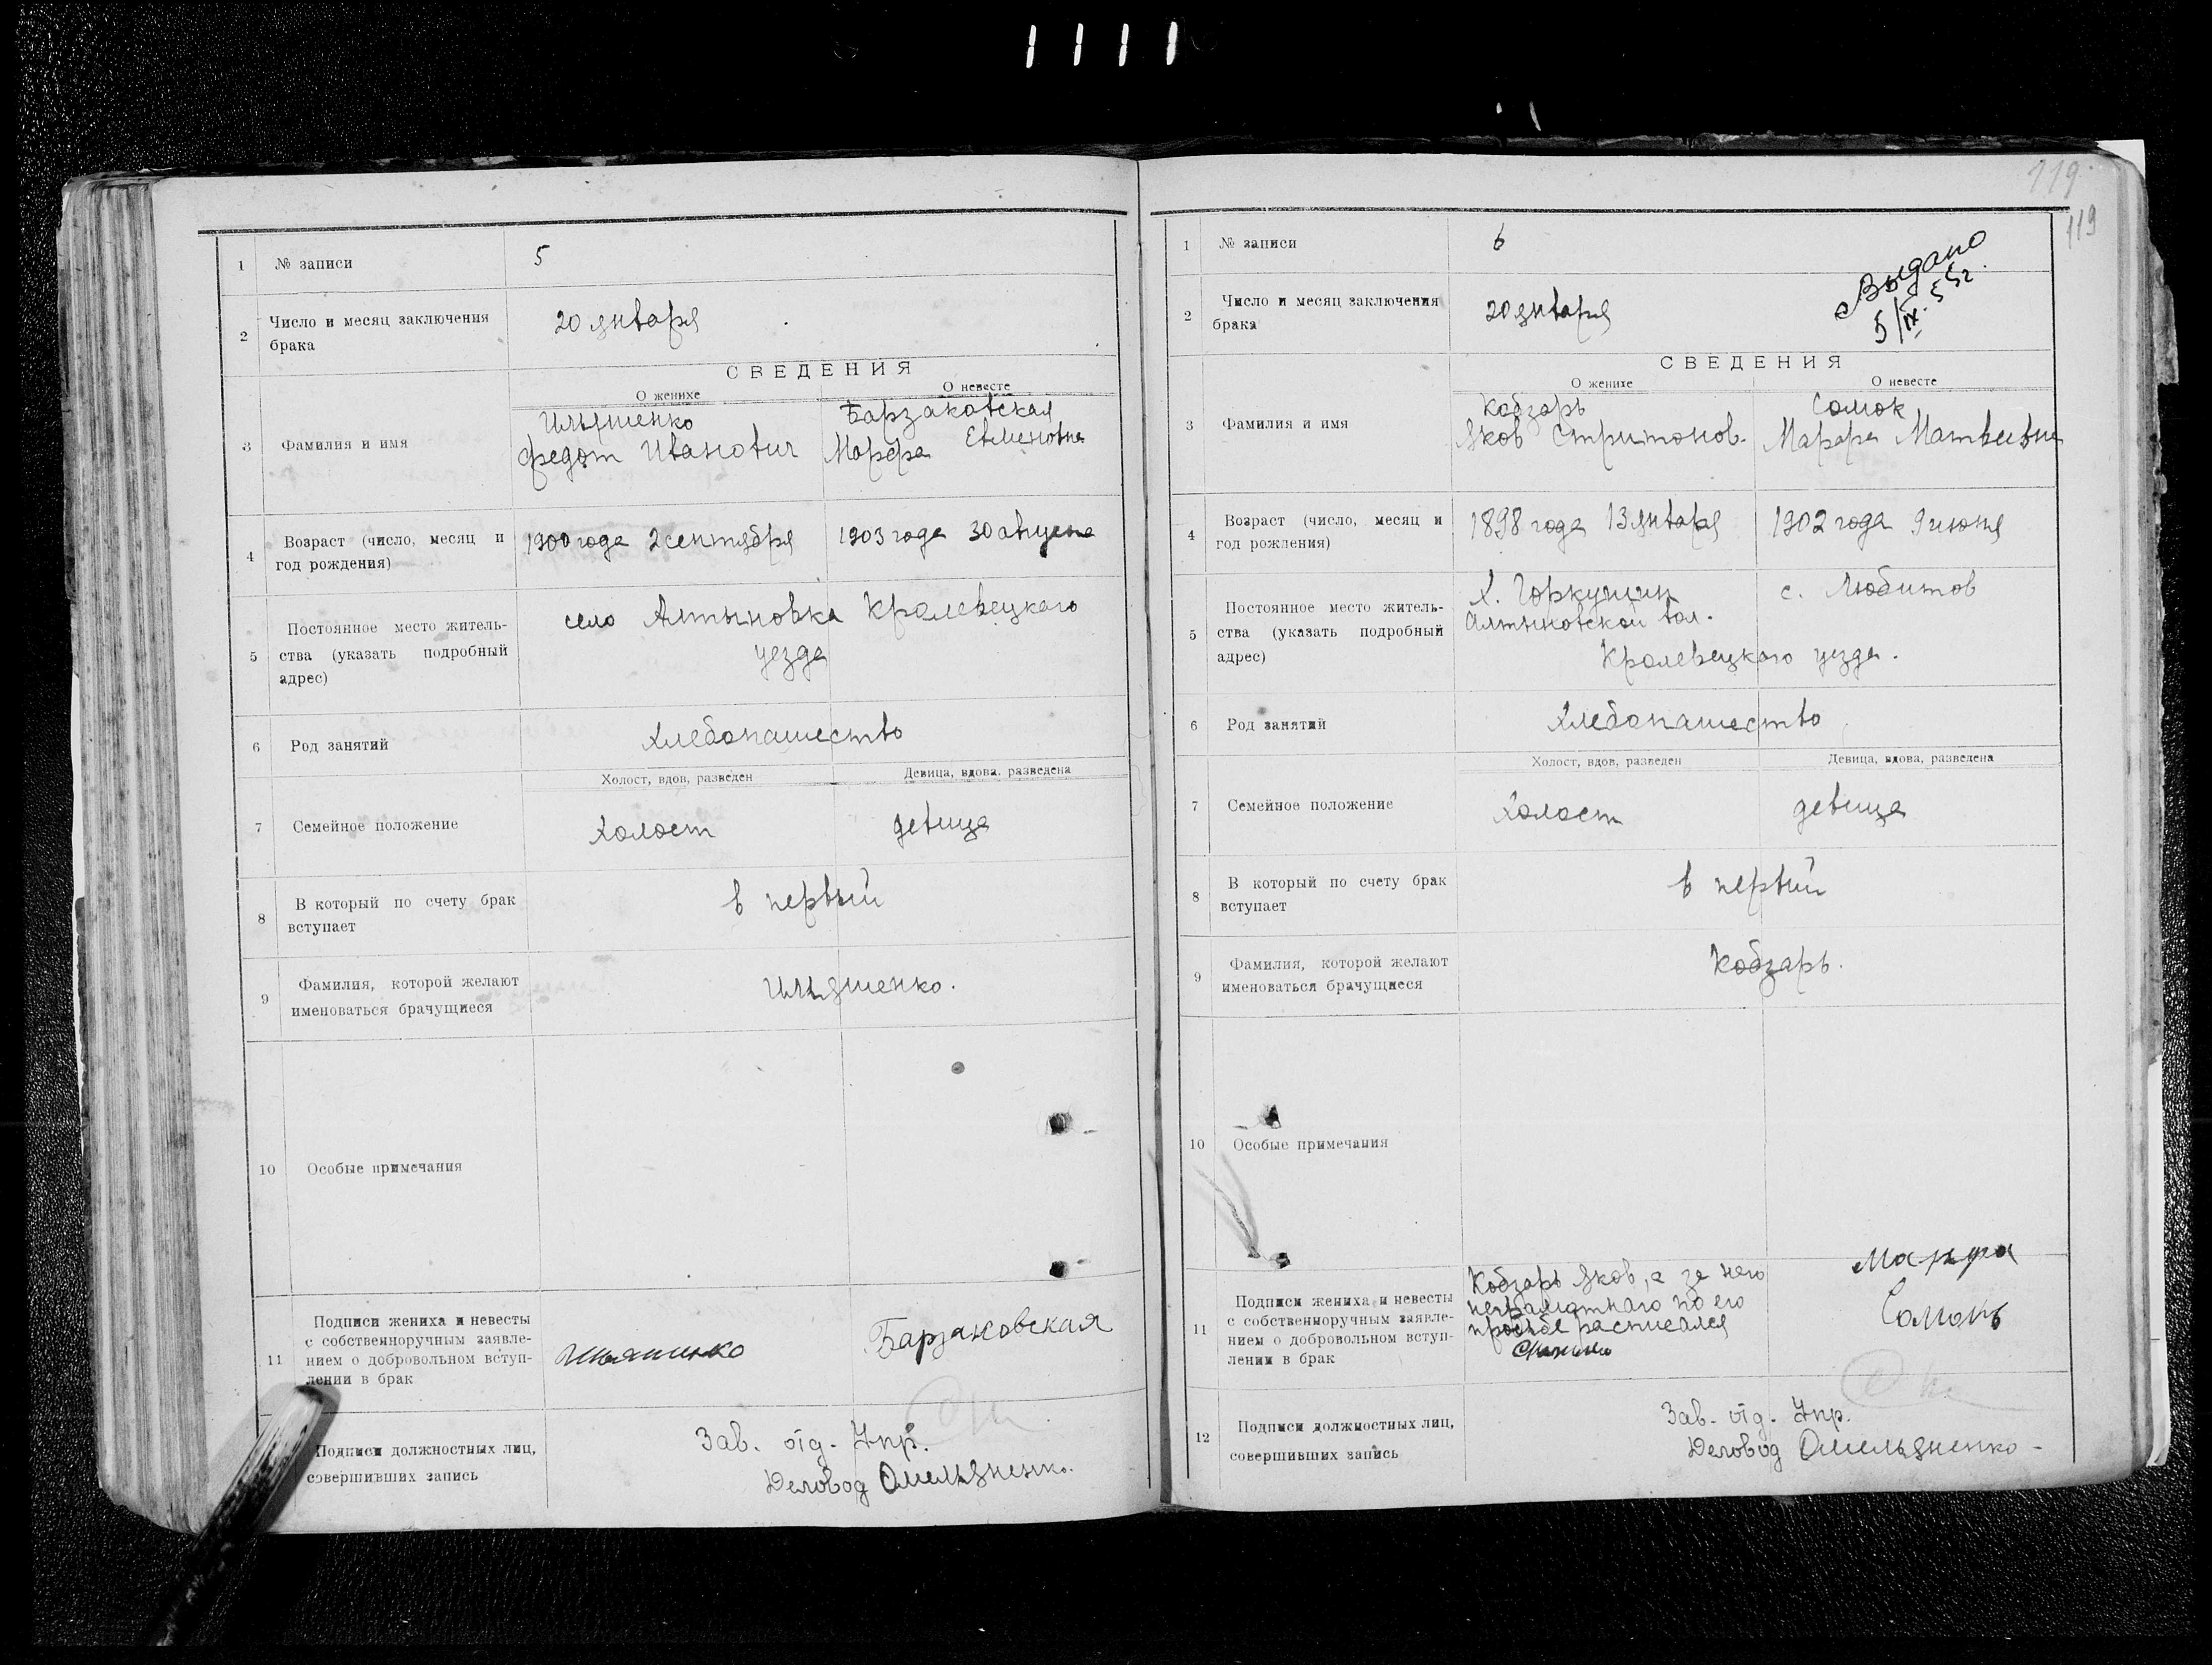 1111
1 № записи 5
2 Число и месяц заключения брака 20 января
СВЕДЕНИЯ
О женихе О невесте
3 Фамилия и имя
Ильяшенко Барзаковская
Федот Иванович Марфа Евменовна
4 Возраст (число, месяц и год рождения) 1900 года 2 сентября 1903 года 30 августа
5 Постоянное место жительства (указать подробный адрес)
село Алтыновка Кролевецкого
уезда
6 Род занятий Хлебопашество
Холост, вдов, разведен Девица, вдова, разведена
7 Семейное положение Холост девица
8 В который по счету брак вступает в первый
9 Фамилия, которой желают именоваться брачущиеся Ильяшенко.
10 Особые примечания
11 Подписи жениха и невесты с собственноручным заявлением о добровольном вступлении в брак
Ильяшенко Барзаковская
Подписи должностных лиц, совершивших запись
Зав. отд. Упр.
Деловод Омельяненко.
119
119
1 № записи 6
Выдано
5/IX. 55г.
2 Число и месяц заключения брака 20 января
СВЕДЕНИЯ
О женихе О невесте
3 Фамилия и имя
Кобзарь Сомок
Яков Марфа Матвеевна
4 Возраст (число, месяц и год рождения) 1898 года 13 января 1902 года 9 июня
5 Постоянное место жительства (указать подробный адрес)
Х. с. Любитов
Алтыновской вол.
Кролевецкого уезда.
6 Род занятий Хлебопашество
Холост, вдов, разведен Девица, вдова, разведена
7 Семейное положение Холост девица
8 В который по счету брак вступает в первый
9 Фамилия, которой желают именоваться брачущиеся Кобзарь.
10 Особые примечания
11 Подписи жениха и невесты с собственноручным заявлением о добровольном вступлении в брак
Кобзарь Яков, а за него
неграмотного по его
просьбе расписался
Марфа
Сомокъ
12 Подписи должностных лиц, совершивших запись
Зав. отд. Упр.
Деловод Омельяненко-